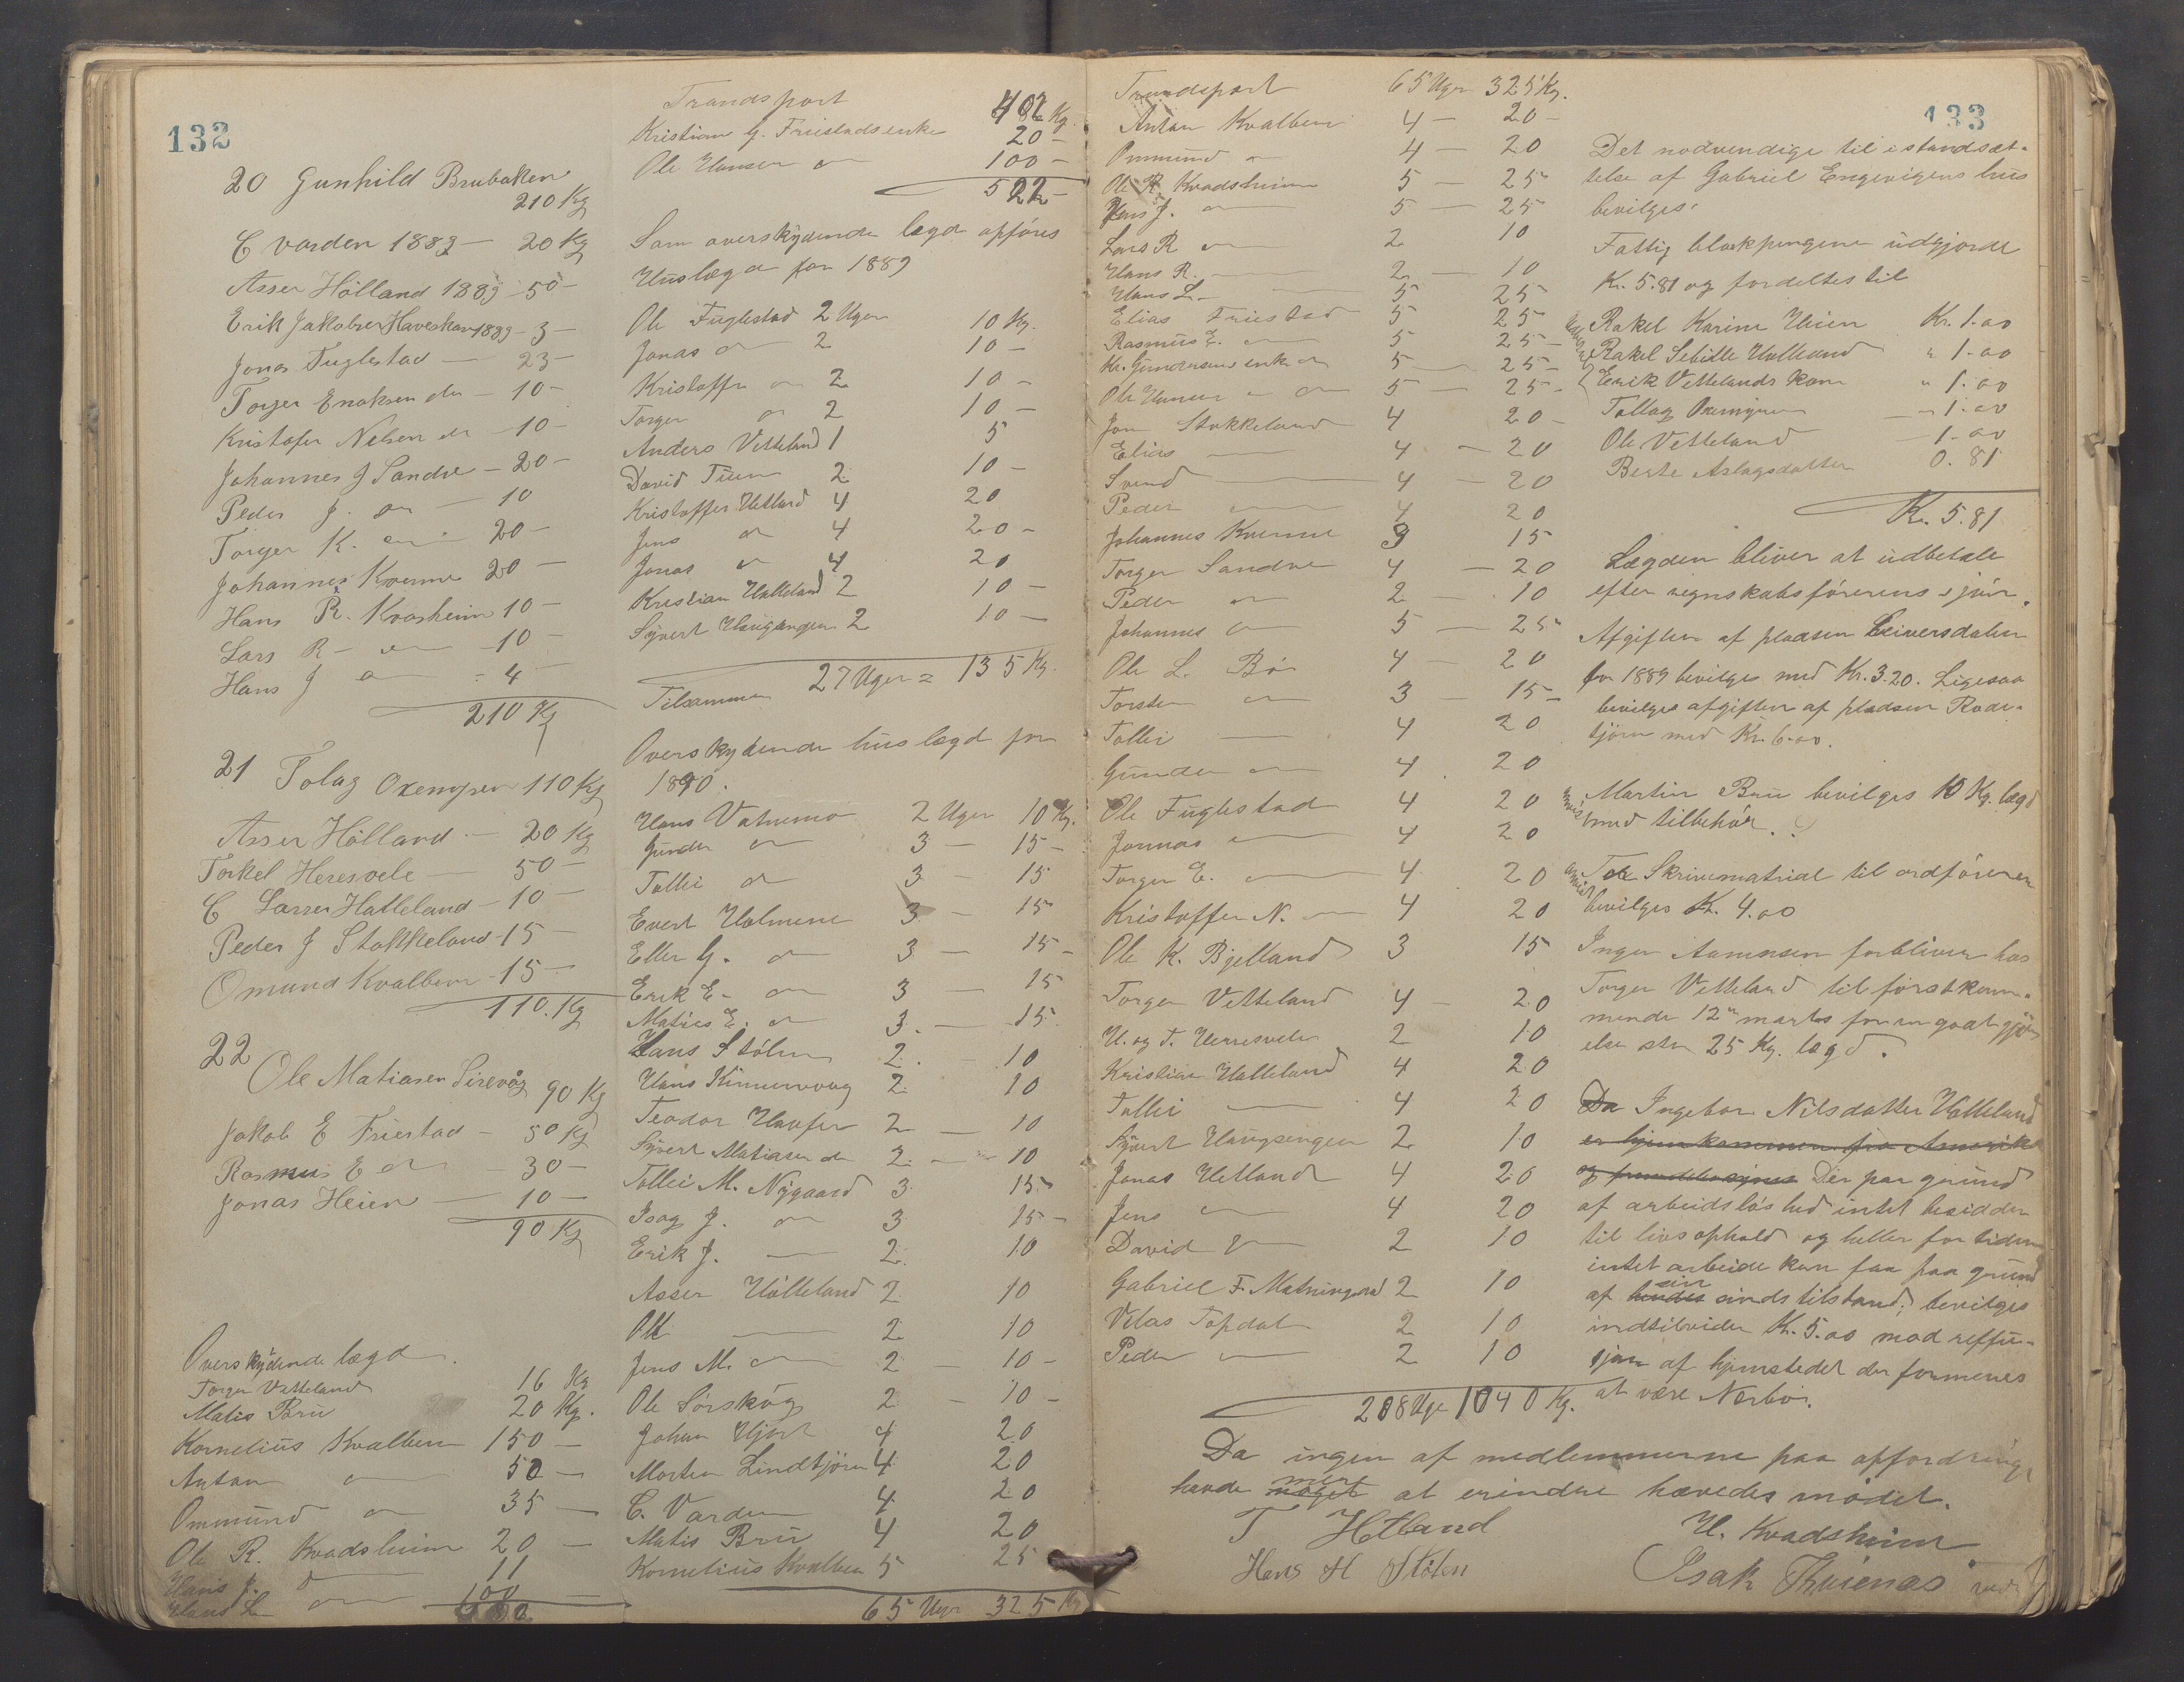 132
20 Gunhild Brubaken
210 Kg
C varden 1889 — 20 Kg
Asser Hölland 1889 — 50 —
Erik Jakobsen Haveskar 1889 — 3 —
Jonas Fuglestad — 23 —
Torger Enoksen do — 10 —
Kristofer Nelsen do — 10 —
Johannes J Sandve — 20 —
Peder J. do — 10
Torger K. do — 20 —
Johannes Kvenne 20 —
Hans R. Kvasheim 10 —
Lars R — do — 10 —
Hans J do — 4
210 Kg
21 Tolag Oxemyren 110 Kg
Asser Hölland — 20 Kg
Torkel Heresvele — 50 —
C Larsen Hatleland — 10 —
Peder J Stokkeland — 15 —
Omund Kvalbein — 15 —
110. Kg
22
Ole Matiasen Sirevåg 90 Kg
Jakob E Friestad — 50 Kg
Rasmus E do — 30 —
Jonas Heien — 10 —
90 Kg
Overskydende lægd.
Torger Vetteland 16 Kg
Matis Brü 20 Kg.
Kornelius Kvalbein 150 —
Antan do 50 —
Ommund do 35 —
Ole R. Kvadsheim 20 —
Hans J. do 11
Hans L do 100
Trandsport 402 Kg.
Kristian G. Friestads enke 20 —
Ole Hansen do 100 —
522 —
Som overskydende lægd opföres
Huslægd for 1889
Ole Fuglestad 2 Uger 10 Kg.
Jonas do 2 10 —
Kristoffer do 2 10 —
Torger do 2 10 —
Anders Vetteland 1 5
David Tuen 2 10 —
Kristoffer Hetland 4 20
Jens do 4 20 —
Jonas do 4 20
Kristian Hatleland 2 10 —
Syvert Haugangen 2 10 —
Tilsammen 27 Uger = 135 Kg.
Overskydende huslægd for
1890.
Hans Vatnemo 2 Uger 10 Kg.
Gunder do 3 — 15 —
Tollei do 3 15
Evert Holmene 3 — 15
Eller G. do 3 — 15 —
Erik E. do 3 — 15
Matias E. do 3. — 15.
Hans Stölen 2. — 10
Hans Kinnervaag 2. 10
Teodor Havsen 2 — 10
Syvert Matiasen do 2 — 10
Tollei M. Nygaard 3 15
Isag J. do 3 15 —
Erik J. — 2. 10
Asser Hölleland 2 10
Ole — 2 10
Jens M. do 2 10 —
Ole Sörskog 2 — 10 —
Johan Hjort 4 20
Morten Lindtjörn 4 20
C. Varden 4 20
Matis Brü 4 20
Kornelius Kvalbein 5 25
65 Uger 325 Kg
Trandsport 65 Uger 325 Kg.
Antan Kvalbein 4 — 20 —
Ommund do 4 — 20
Ole R. Kvadsheim 5 — 25
Hans J. do 5 — 25
Lars R do 2 10
Hans R. — 2 — 10
Hans L — 5 25
Elias Friestad 5 25
Rasmus E. do 5 25 —
Kr. Gundersens enke do 5 — 25 —
Ole Hansen do 5 — 25 —
Jon Stokkeland 4 20 —
Elias — 4 — 20
Svend — 4 — 20
Peder — 4 20
Johannes Kvenne 3 15
Torger Sandve 4 — 20
Peder do 2 — 10
Johannes do 5 — 25
Ole L. Bö 4 — 20
Torsten do 3 — 15 —
Tollei — 4 20
Gunder do 4. 20
Ole Fuglestad 4 20
Jonnas — 4 20
Torger E. — 4 20
Kristoffer N. — 4 20
Ole K. Bjelland 3 15
Torger Vetteland 4 — 20
H. og T. Herresvele 2 10
Kristian Hatleland 4 20
Tollei — 4 20
Syvert Haugangen 2 10
Jonas Hetland 4 20
Jens — 4 20
David — 2 10
Gabriel F. Matningsdal 2 10
Velas Topdal 2 10
Peder — 2 10
208 Uger 1040 Kg.
133
Det nødvendige til istandsæt-
telse af Gabriel Engevigens hus
bevilges.
Fattig blokpengene udgjorde
Kr. 5.81 og fordeltes til
Rakel Karine Heien Kr. 1.00
Rakel Sebille Hatleland " 1.00
Erik Vettelands kone " 1.00
Tollag Oxemyren — 1.00
Ole Vetteland — 1.00
Berte Aslagsdatter 0.81
Kr. 5.81
Lægden bliver at udbetale
efter regnskabsförerens skjön.
Afgiften af pladsen Leiversdalen
for 1889 bevilges med Kr. 3.20. Ligesaa
bevilges afgiften af pladsen Rode-
tjörn med Kr. 6.00.
Martin Brü bevilges 10 Kg. lægd
med tilbehör.
Til Skrivematrial til ordföreren
bevilges Kr. 4.00
Inger Aamnsen forbliver hos
Torger Vetteland til förstkom-
mende 12te marts for en godtgjör-
else stor 25 Kg. lægd.
Da Ingebor Nilsdatter Hatleland
er hjemkommen fra Amerika
og fremdeles synes Der paa grund
af arbeidslöshed intet besidder
til livsophold og heller for tiden
intet arbeide kan faa paa grund
af hendes sin sindstilstand; bevilges
indtilvider Kr. 5.00 mod reffu-
sjon af hjemstedet der formenes
at være Nærbø.
Da ingen af medlemmerne paa opfordring
havde noget mere at erindre hævedes mödet.
T Hetland H. Kvadsheim
Hans H Stölen Isak Thuenæs